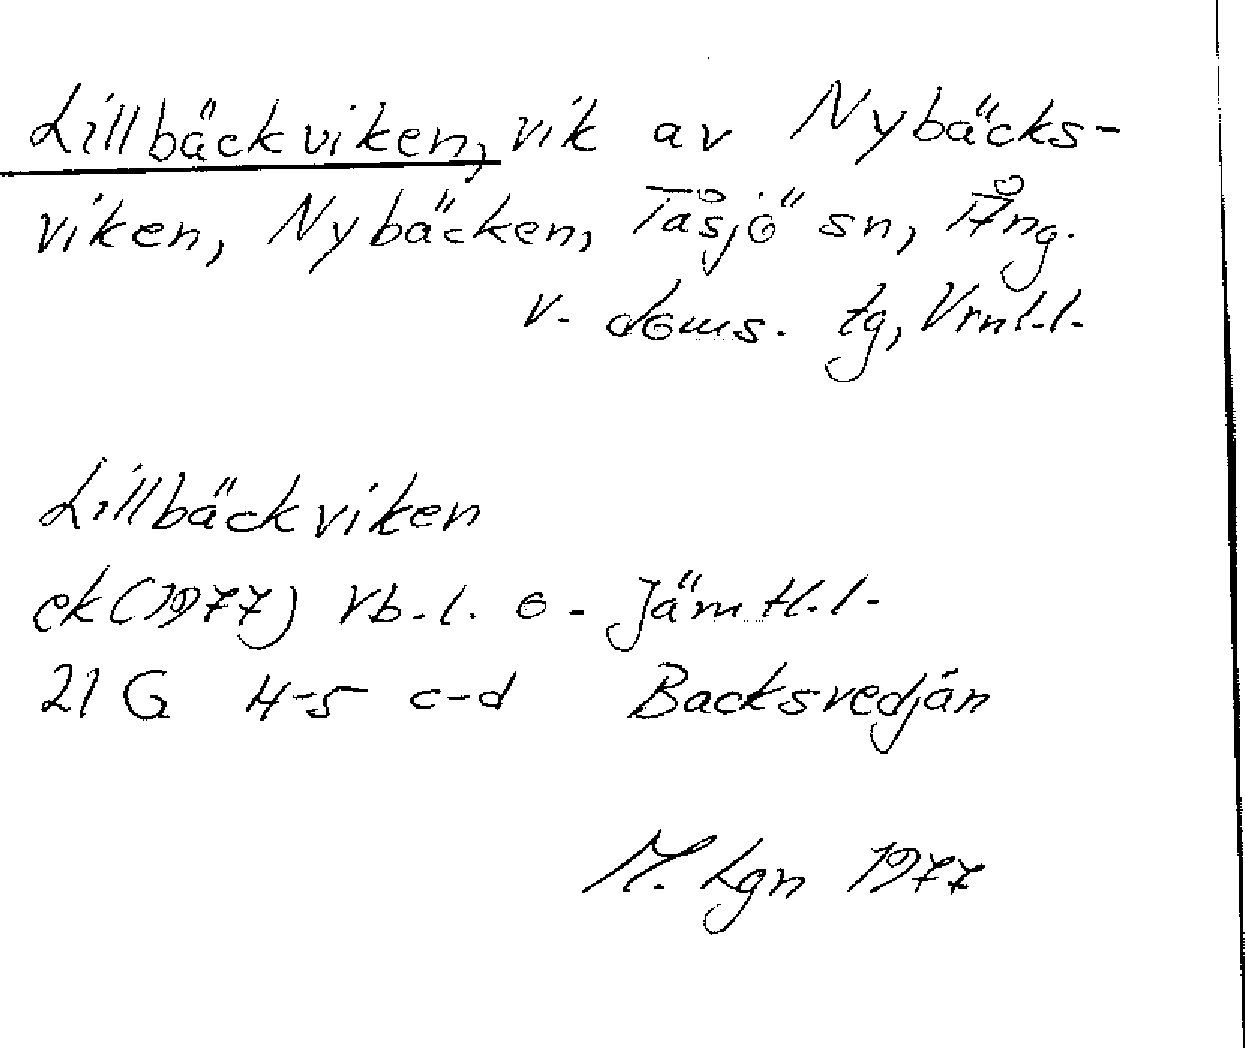 Lillbäckviken, vik av Nybäcks-
viken, Nybäcken, Tåsjö sn, Ång.
v. doms. tg, Vrnl.l.
Lillbäckviken
ek (1977) Vb.l. o. Jämtl.l.
21 G 4-5 c-d Backsvedjan
M. Lgn 1977